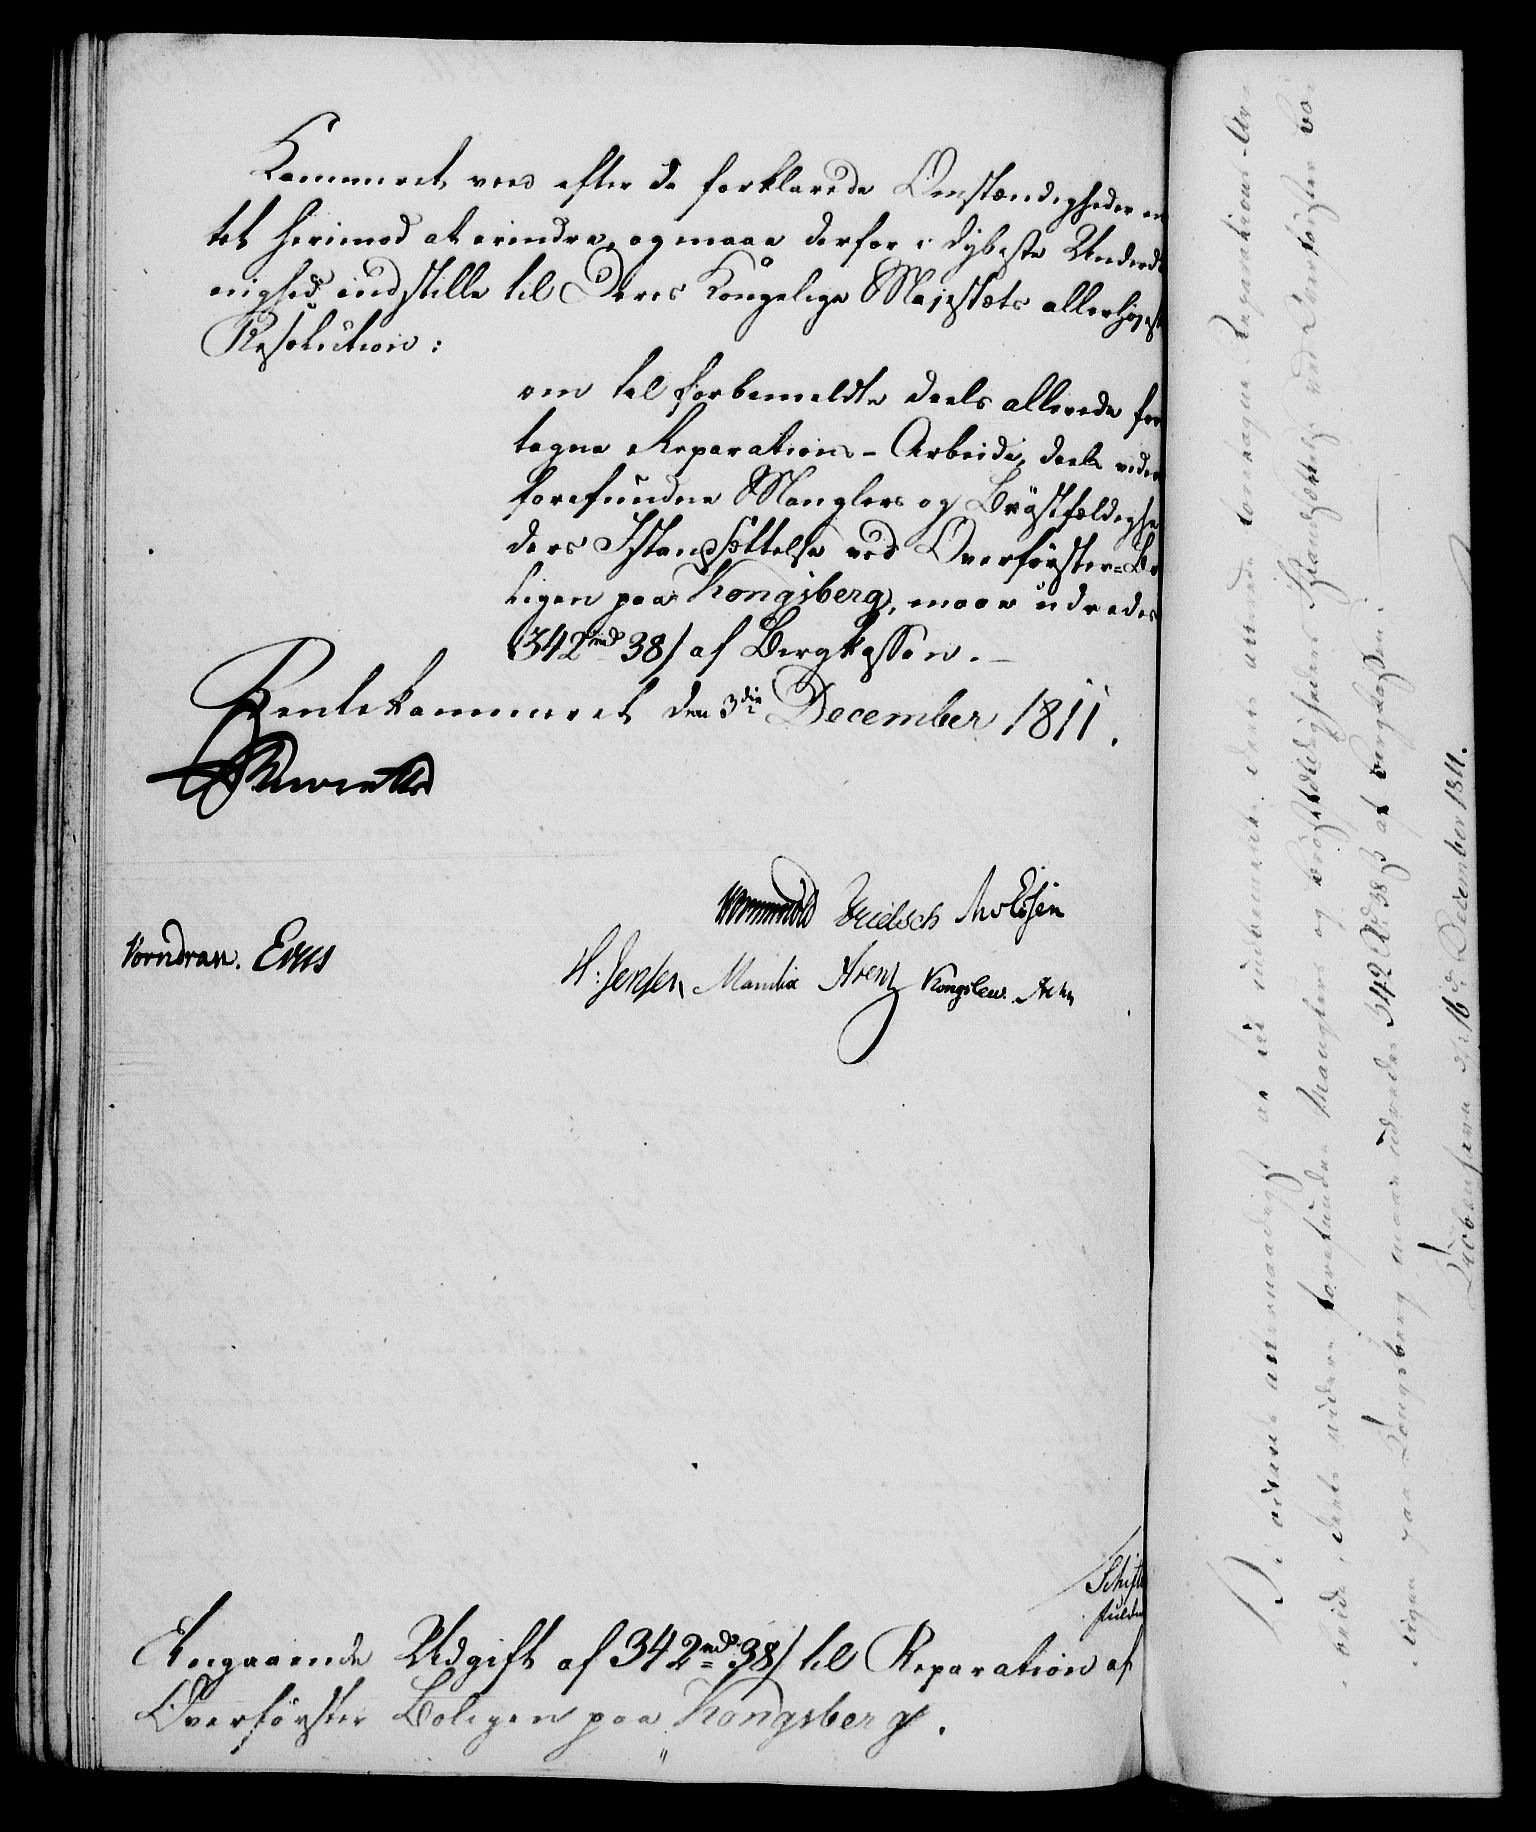 Kammeret veed efter de forklarede Omstændigheder in
tet herimod at erindre, og maae derfor i dybeste Underda
nighed indstille til Deres Kongelige Majestæts allerhøjeste
Resolution:
om til forbemeldte deels allerede fore
tagne Reparations-Arbeide, deels videre
forefundne Manglers og Brøstfældighe
ders Istandsættelse ved Overførster-Bo
ligen paa Kongsberg, maae udredes
342 rd 38 s af Bergkassen.
Rentekammeret den 3die December 1811.
Vorndran. Evers
H: Jensen Manthe Arentz Kongslew.
Angaaende Udgift af 342 rd 38 s til Reparation af
Overførster Boligen paa Kongsberg.
Vi ville allernaadigst at til indbemeldte deels allerede foretagne Reparations-Ar-
beide, deels videre forefundne Manglers og Brøstfældigheders Istandsættelse ved Overførster Bo-
ligen paa Kongsberg maae udredes 342 Rd 38 ß af Bergkassen.
Kiøbenhavn d. 16 d. December 1811.